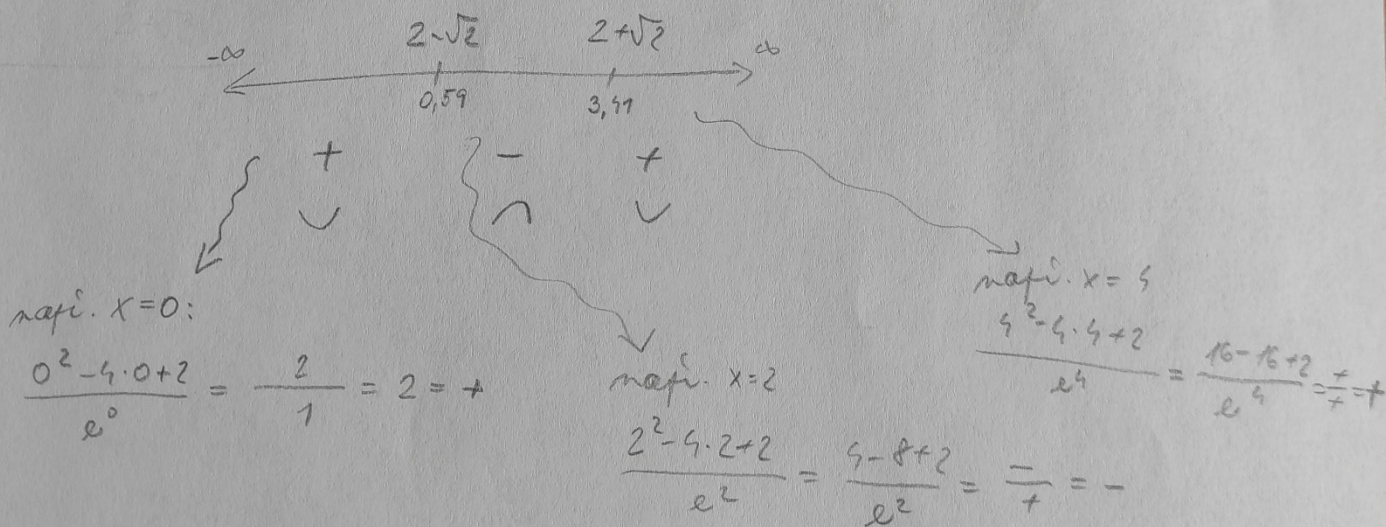 -∞ 2-√2 2+√2 ∞
0,59 3,41
+ - +
∪ ∩ ∪
např. x=0:
(0²-4·0+2)/e⁰ = 2/1 = 2 = +
např. x=2
(2²-4·2+2)/e² = (4-8+2)/e² = -/+ = -
např. x=4
(4²-4·4+2)/e⁴ = (16-16+2)/e⁴ = +/+ = +